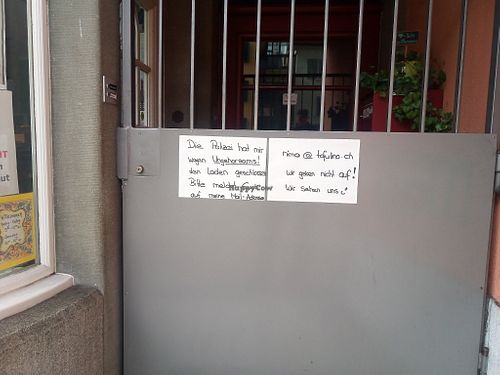 Die Polizei hat mir
wegen Ungehorsams!
den Laden geschlossen
Bitte meldet
auf meine Mail-Adresse
nima @ tofulino.ch
wir geben nicht auf!
Wir sehen uns
HappyCow